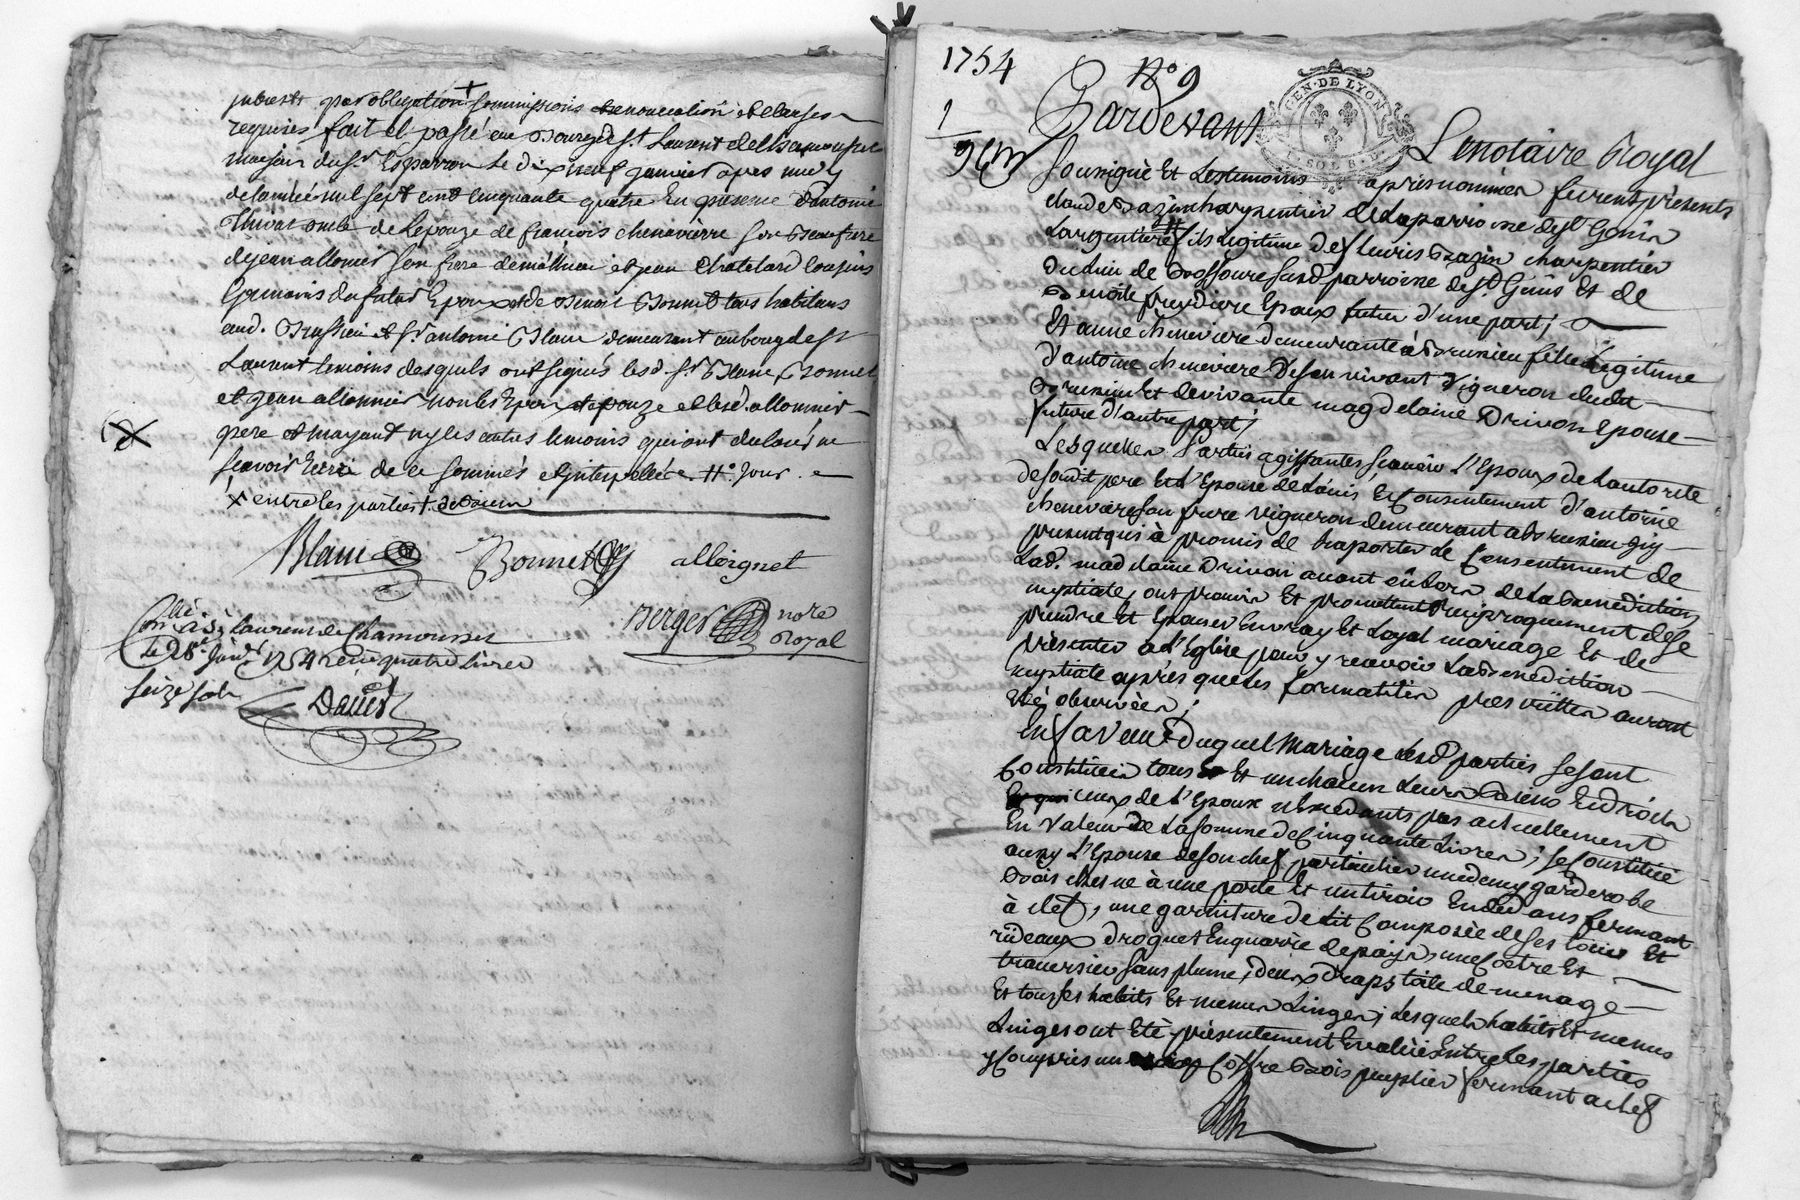 par obligation + soummissions renonciations et clauses
requises fait et passé au Bourg de St Laurent de Chamousset
maison du Sr Esparron le dix neuf janvier apres midy
de l'année mil sept cent cinquante quatre En presence d'antoine
oncle de Lepouze de françois chenavierre son Beau frere
de jean allonier son frere jean Chatelard cousins
Germains du futur Epoux et de Benoit Bonnet tous habitans
aud. Brussieu et Sr antoine Blanc demeurant au bourg de St
Laurent temoins desquels ont signés lesd. Sr Blanc, Bonnet
et jean allonnier non les Epoux et epouze et lesd. allonnier
pere et mayaud ny les autres temoins qui ont declaré ne
scavoir Ecrire de ce sommés et interpellés
x entre les parties +
Blanc Bonnet
Berger nore
Royal
St laurent de Chamousset
le 28e Janvr 1754 reçu quatre livres
seize sols
1754
No 9
1
GEN. DE LYON
Pardevant Le notaire Royal
soussigné Et Les temoins après nommés furent présents
claude Bazin charpentier de la parroisse de St Genis
Largentiere fils legitime de fleuris Bazin charpentier
du lieu de parroisse de St Genis Et de
Benoite freydiere Epoux futur d'une part;
Et anne cheneviere demeurante à Brussieu fille Legitime
d'antoine cheneviere De son vivant Vigneron dudit
Brussieu Et de vivante magdelaine Drivon Epouse
future d'autre part;
Lesquelles Parties agissantes sçavoir L'Epoux de L'autorité
de sondit pere Et L'Epouse de L'avis Et consentement d'antoine
cheneviere son frere vigneron demeurant a Brussieu icy
present qui à promis de raporter le Consentement de
Lad. madelaine Drivon avant ou Lors de La Benediction
nuptiale, ont promis Et promettent reciproquement de se
prendre Et Epouser En vray Et Loyal mariage Et de se
présenter a L'Eglise pour y recevoir La Benediction
nuptiale après que les formalités prescrittes auront
Eté observées;
En faveur Duquel Mariage Lesd. parties se sont
Constitués tous Et un chacun Leurs Biens Et droits
ceux de L'Epoux n'Excedants pas actuellement
En Valeur de La somme de Cinquante Livres; se Constitue
aussy L'Epouse de son chef particulier un demy garderobe
Bois chesne à une porte Et un tiroir En dedans fermant
à clef, une garniture de lit Composée de ses tour Et
rideaux droguet Enquarré de pays, une Coetre Et
traversier sans plume, deux draps toile de menage
Et tous ses habits Et menus Linges; Lesquels habits Et menus
Linges ont Eté présentement Evalués Entre Les parties
y Compris un Coffre Bois peuplier fermant a clef